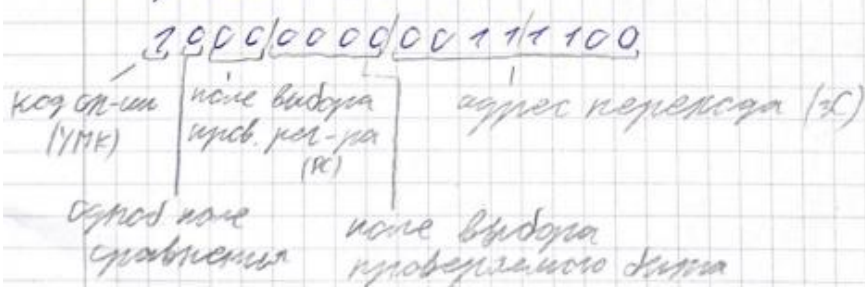 1 0 0 0 0 0 0 0 0 0 1 1 1 1 0 0
код оп-ии (УМК)
поле выбора пров. рег-ра (РС)
адрес перехода (3C)
однобит. поле сравнения
поле выбора проверяемого бита